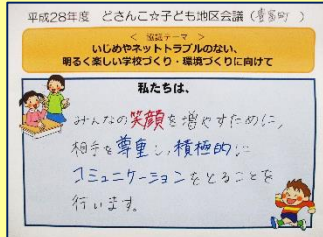 平成28年度 どさんこ☆子ども地区会議(豊富町)
＜ 協議テーマ ＞
いじめやネットトラブルのない、
明るく楽しい学校づくり・環境づくりに向けて
私たちは、
みんなの笑顔を増やすために、
相手を尊重し、積極的に
コミュニケーションをとることを
行います。